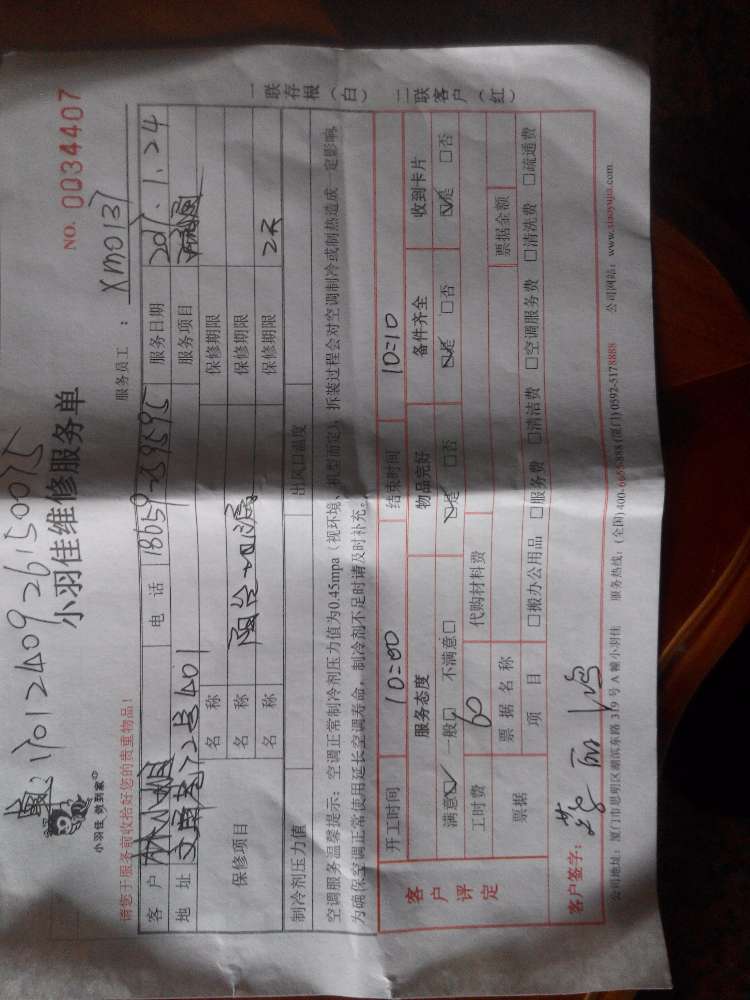 1701240926150075
小羽佳 做到家
小羽佳维修服务单
NO. 0034407
服务员工： XM0137
请您于服务前收拾好您的贵重物品！
客户 林小姐 电话 18659259595 服务日期 2017.1.24
地址 22号401 服务项目
保修项目 名称 保修期限
名称 保修期限
名称 保修期限 2天
制冷剂压力值 出风口温度
空调服务温馨提示：空调正常制冷剂压力值为0.45mpa（视环境、机型而定），拆装过程会对空调制冷或制热造成一定影响，
为确保空调正常使用延长空调寿命，制冷剂不足时请及时补充。
一联存根（白） 二联客户（红）
客户评定
开工时间 10:00 结束时间 10:10
服务态度 物品完好 备件齐全 收到卡片
满意☑ 一般□ 不满意□ ☑是 □否 ☑是 □否 ☑是 □否
工时费 60 代购材料费
票据 票据名称 票据金额
项目 □搬办公用品 □服务费 □清洁费 □空调服务费 □清洗费 □疏通费
客户签字：
公司地址：厦门市思明区湖滨东路319号A幢小羽佳 服务热线：(全国)400-6658-888 (厦门)0592-5178888 公司网站：www.xiaoyujia.com